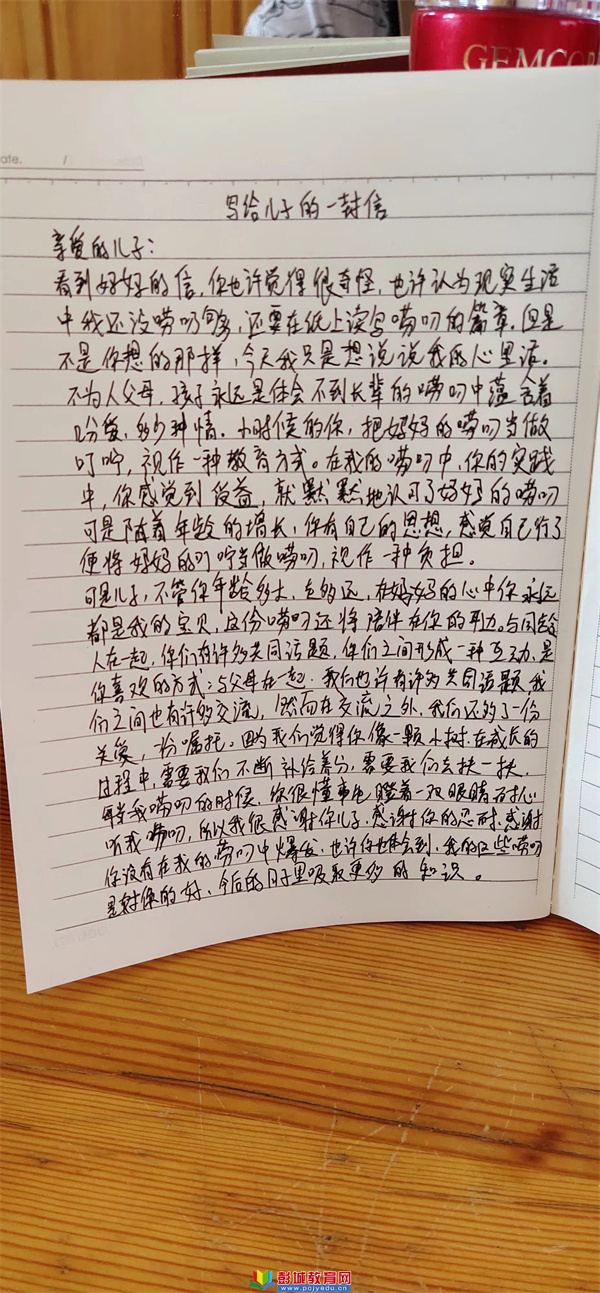 GEMCO
ate. /
写给儿子的一封信
亲爱的儿子：
看到妈妈的信，你也许觉得很奇怪，也许认为现实生活
中我还没唠叨够，还要在纸上谈写唠叨的篇章。但是
不是你想的那样，今天我只是想说说我的心里话。
不为人父母，孩子永远是体会不到长辈的唠叨中蕴含着
几份爱，多少种情。小时候的你，把妈妈的唠叨当做
叮咛，视作一种教育方式。在我的唠叨中，你的实践
中，你感觉到受益，就默默地认可了妈妈的唠叨
可是随着年龄的增长，你有自己的思想，感觉自己行了
便将妈妈的叮咛当做唠叨，视作一种负担。
可是儿子，不管你年龄多大，走多远，在妈妈的心中你永远
都是我的宝贝，这份唠叨还将陪伴在你的耳边。与同龄
人在一起，你们有许多共同话题，你们之间形成一种互动，是
你喜欢的方式；与父母在一起，我们也许有许多共同话题，我
们之间也有许多交流，然而在交流之外，我们还多了一份
关爱，一份嘱托。因为我们觉得你像一颗小树，在成长的
过程中，需要我们不断补给养分，需要我们去扶一扶，
每当我唠叨的时候，你很懂事地瞪着一双眼睛耐心
听我唠叨，所以我很感谢你儿子，感谢你的忍耐，感谢
你没有在我的唠叨中爆发，也许你也体会到，我的这些唠叨
是对你的好，今后的日子里吸取更多的知识。
彭城教育网
www.pcjyedu.cn